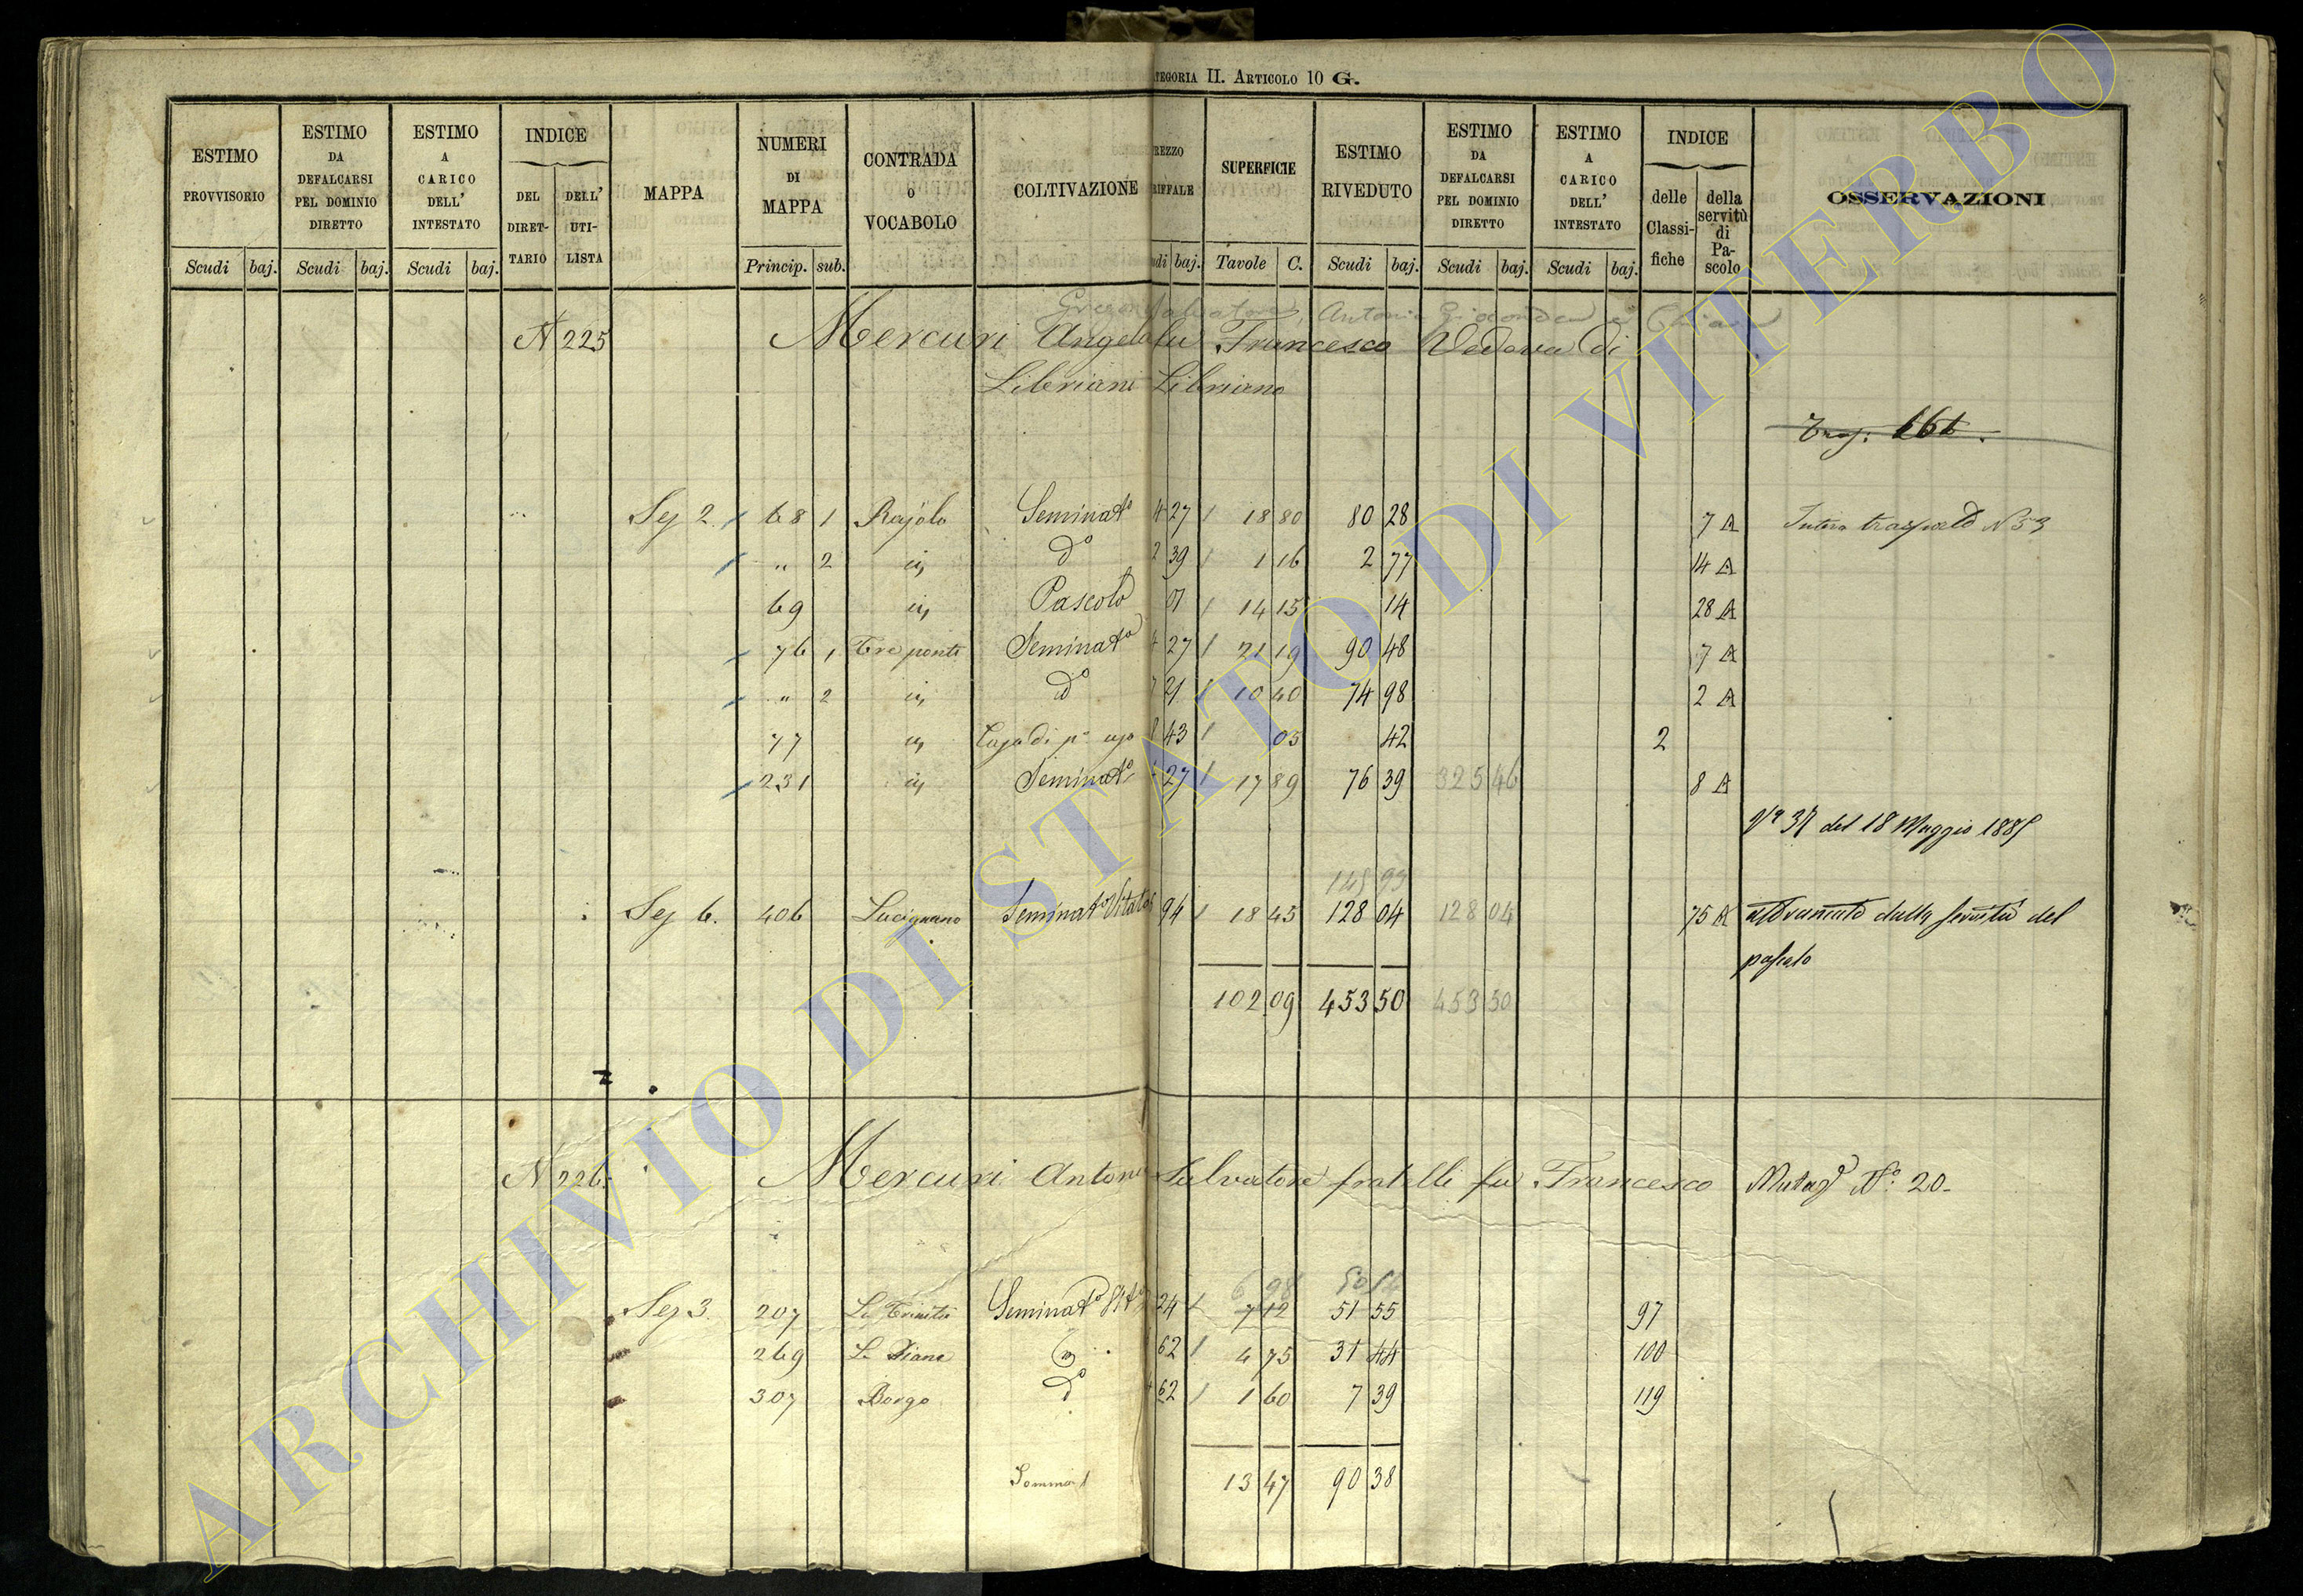 ATEGORIA II. ARTICOLO 10 G.
ESTIMO PROVVISORIO Scudi baj.
ESTIMO DA DEFALCARSI PEL DOMINIO DIRETTO Scudi baj.
ESTIMO A CARICO DELL' INTESTATO Scudi baj.
INDICE DEL DIRET-TARIO DELL' UTI-LISTA
MAPPA
NUMERI DI MAPPA Princip. sub.
CONTRADA O VOCABOLO
COLTIVAZIONE
REZZO RIFFALE udi baj.
SUPERFICIE Tavole C.
ESTIMO RIVEDUTO Scudi baj.
ESTIMO DA DEFALCARSI PEL DOMINIO DIRETTO Scudi baj.
ESTIMO A CARICO DELL' INTESTATO Scudi baj.
INDICE delle Classi-fiche della servitù di Pa-scolo
OSSERVAZIONI
Salvatore, Antonio
N 225 Mercuri Angela fu Francesco Vedova di
Liberiani Libriano
Seg 2. 68 1 Rajolo Seminato 4 27 18 80 80 28 7 A Intero trasporto N 53
" 2 in do 2 39 1 16 2 77 14 A
69 in Pascolo 01 14 15 14 28 A
76 1 Tre ponti Seminato 4 27 21 19 90 48 7 A
" 2 in do 7 21 10 40 74 98 2 A
77 in Casa di po uso 8 43 05 42 2
231 in Seminato 27 17 89 76 39 325 46 8 A
del 18 Maggio 188
148 93
Seg 6. 406 Lucignano Seminato Vitato 94 18 45 128 04 128 04 75 A affrancato dalla servitù del
pascolo
102 09 453 50 453 50
N 226 Mercuri Antonio Salvatore fratelli fu Francesco Mutaz No 20
6 98 50 54
Seg 3. 207 La Trinità Seminato Vito 24 7 12 51 55 97
269 Le Piane 62 4 75 31 44 100
307 Borgo do 4 62 1 60 7 39 119
Somma 13 47 90 38
ARCHIVIO DI STATO DI VITERBO